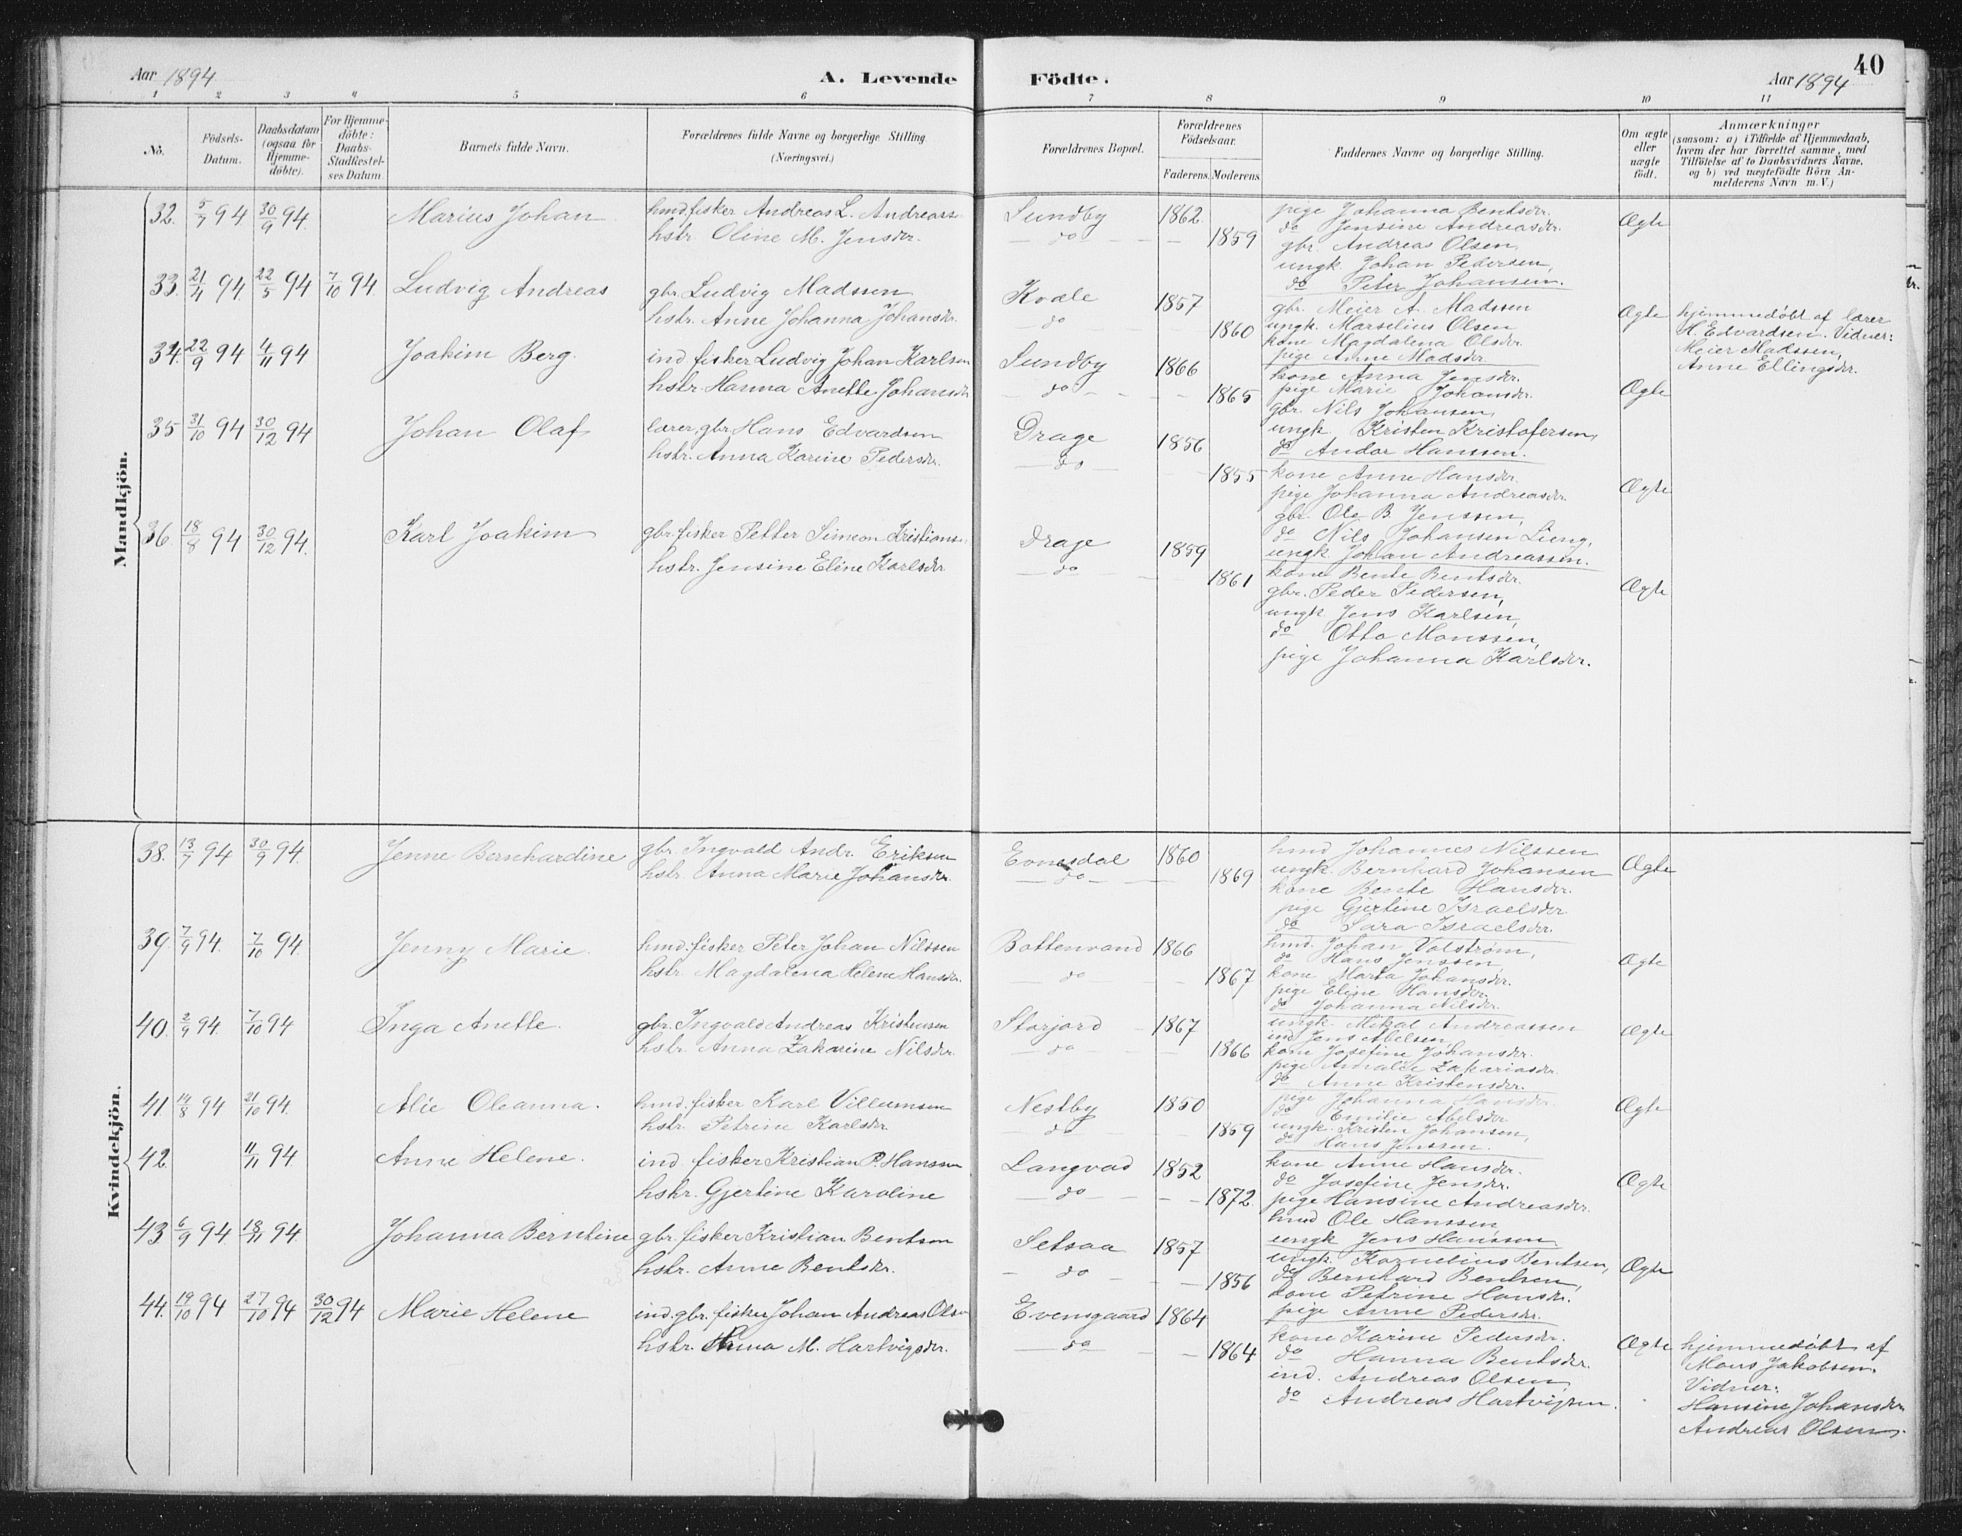 40
Aar 1894 A. Levende Födte. Aar 1894
1 2 3 4 5 6 7 8 9 10 11
No. Födsels-Datum. Daabsdatum (ogsaa for Hjemme-döbte). For Hjemme-döbte: Daabs-Stadfæstel-ses Datum Barnets fulde Navn. Forældrenes fulde Navne og borgerlige Stilling (Næringsvei.) Forældrenes Bopæl. Forældrenes Födselsaar. Faderens. Moderens. Faddernes Navne og borgerlige Stilling. Om ægte eller uægte födt. Anmærkninger (saasom: a) i Tilfælde af Hjemmedaab, hvem der har forrettet samme, med Tilföielse af to Daabsvidners Navne, og b) ved uægtefödte Börn An-melderens Navn m. V.)
Mandkjön.
32. 5/7 94 30/9 94. Marius Johan hmd. fisker Andreas L. Andreass. Sundby 1862 Ægte
hstr. Oline M. Jensdr. do 1859
pige Johanna Bentsdr.
do Jensine Andreasdr.
gbr. Andreas Olsen,
ungk. Johan Pedersen,
do Peter Johansen.
33. 21/4 94. 22/5 94 7/10 94. Ludvig Andreas gbr. Ludvig Madssen Kvale 1857 Ægte
hstr. Anne Johanna Johansdr. do 1860
gbr. Meier A. Madssen
ungk. Marselius Olsen
kone Magdalena Olsdr.
pige Anne Madsdr.
hjemmedöbt af lærer
H. Edvardsen. Vidner:
Meier Madssen,
Anne Ellingsdr.
34. 22/9 94 4/11 94 Joakim Berg. ind. fisker Ludvig Johan Karlsen Sundby 1866 Ægte
hstr. Hanna Anette Johansdr do 1865
kone Anna Jensdr.
pige Marie Johansdr.
gbr. Nils Johansen,
ungk. Kristen Kristofersen,
do Andor Hanssen.
35 31/10 94 30/12 94 Johan Olaf lærer, gbr. Hans Edvardsen Drage 1856 Ægte
hstr. Anna Karine Pedersdr. do 1855
kone Anne Hansdr.
pige Johanna Andreasdr.
gbr. Ole B. Jenssen,
do Nils Johansen Lieng,
ungk. Johan Andreassen.
36. 18/8 94 30/12 94. Karl Joakim gbr. fisker Petter Simeon Kristians. Drage 1859 Ægte
hstr. Jensine Eline Karlsdr do 1861
kone Bente Bentsdr.
gbr. Peder Pedersen,
ungk. Jens Karlsen,
do Otto Monssen,
pige Johanna Karlsdr.
Kvindekjön.
38. 13/7 94 30/9 94. Jenne Bernhardine gbr. Ingvald Andr. Eriksen Evnesdal 1860 Ægte
hstr. Anna Marie Johansdr. do 1869
hmd Johannes Nilssen
ungk. Bernhard Johansen
kone Bente Hansdr.
pige Gjertine Israelsdr.
do Sara Israelsdr.
39. 7/9 94. 7/10 94. Jenny Marie. hmd. fisker Peter Johan Nilssen Bottenvand 1866 Ægte
hstr. Magdalena Helene Hansdr. do 1867
hmd. Johan Valström,
do Hans Jenssen,
kone Marta Johansdr.
pige Eline Hansdr.
do Johanna Nilsdr.
40. 2/9 94. 7/10 94 Inga Anette. gbr. Ingvald Andreas Kristensen Storjord 1867 Ægte
hstr. Anna Zakarine Nilsdr. do 1866
ungk. Mikal Andreassen
ind. Jens Abelsen,
kone Josefine Johansdr.
pige Amalie Zakariasdr.
do Anne Kristensdr.
41 14/8 94 21/10 94. Alie Oleanna. hmd. fisker Karl Villumsen Nestby 1850 Ægte
hstr. Petrine Karlsdr do 1859
pige Johanna Hansdr.
do Emilie Abelsdr
ungk. Kristen Johansen,
do Hans Jenssen.
42. 11/11 94 Anne Helene. ind. fisker Kristian P. Hanssen Langvad 1852 Ægte
hstr. Gjertine Karoline do 1872
kone Anne Hansdr.
do Josefine Jensdr.
pige Hansine Andreasdr.
hmd Ole Hanssen,
ungk Jens Hanssen
43 6/9 94. 18/11 94. Johanna Berntine gbr. fisker Kristian Bentsen Setsaa 1857 Ægte
hstr. Anne Bentsdr. do 1856
ungk. Kornelius Bentsen,
do Bernhard Bentsen,
kone Petrine Hansdr.
pige Anne Pedersdr.
44. 19/10 94 27/10 94 30/12 94 Marie Helene ind. gbr. fisker Johan Andreas Olsen Evensgaard 1864 Ægte
hstr. Anna M. Hartvigsdr. do 1864
kone Karine Pedersdr.
do Hanna Bentsdr.
ind. Andreas Olsen,
do Andreas Hartvigsen.
hjemmedöbt af
Mons Jakobsen.
Vidner:
Hansine Johansdr
Andreas Olsen.